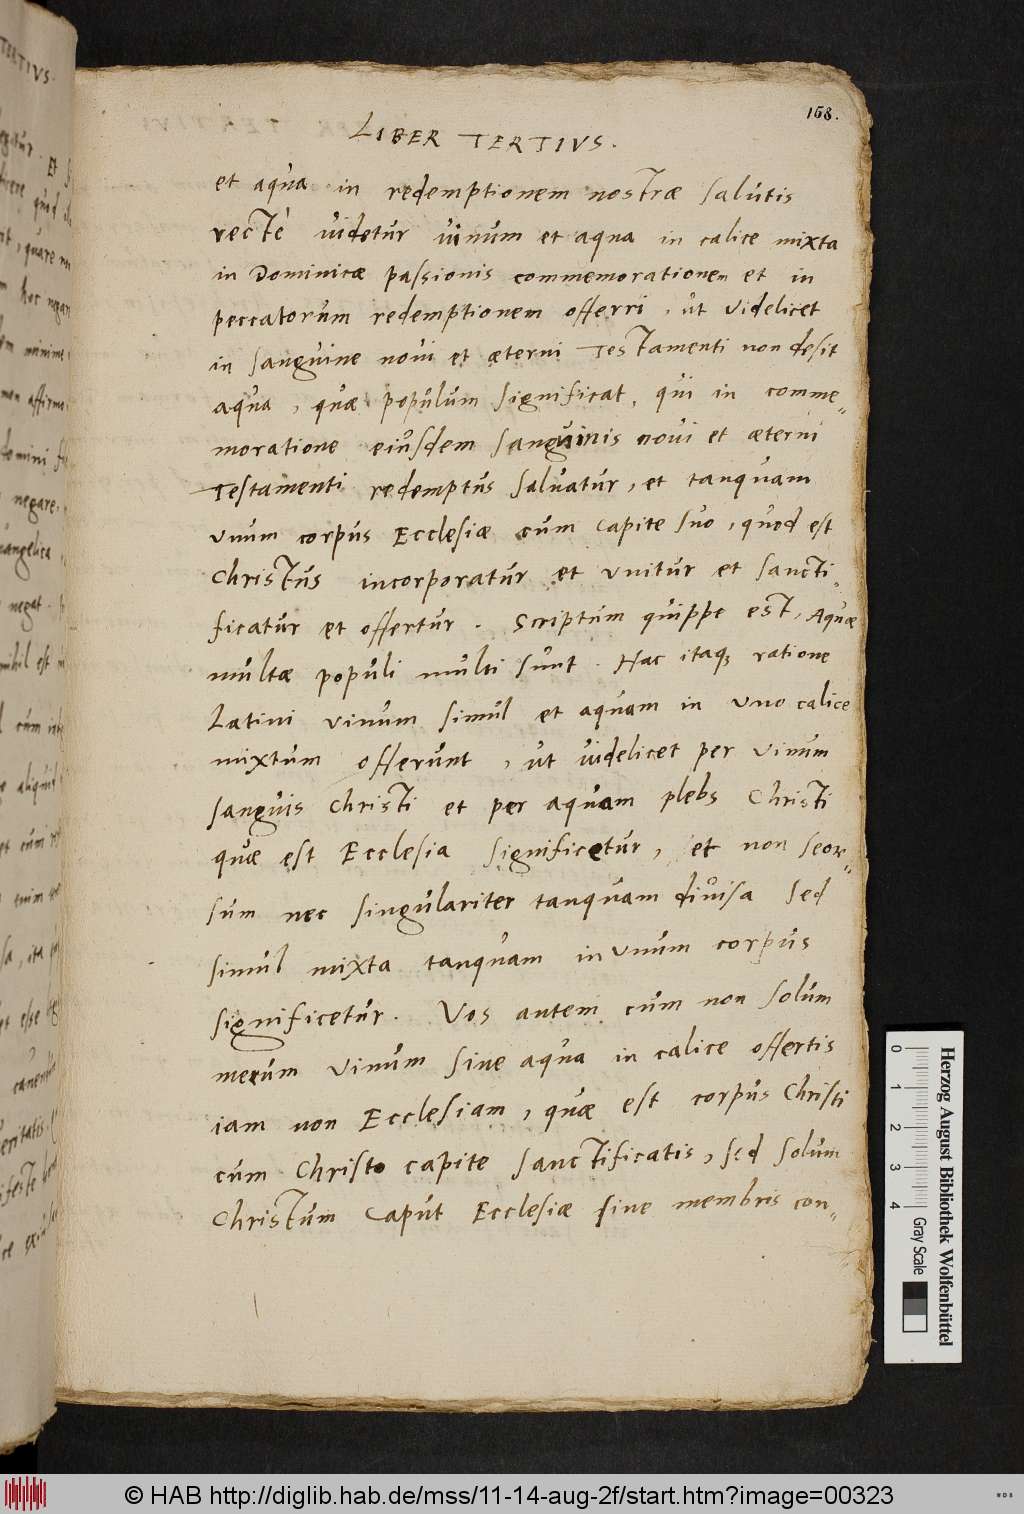 168.
LIBER TERTIVS.
et aqua in redemptionem nostræ salutis
rectè videtur vinum et aqua in calice mixta
in Dominicæ passionis commemorationem et in
peccatorum redemptionem offerri, ut videlicet
in sanguine novi et æterni Testamenti non desit
aqua, quæ populum significat, qui in comme„
moratione eiusdem sanguinis novi et æterni
Testamenti redemptus salvatur, et tanquam
vnum corpus Ecclesiæ cum capite suo, quod est
Christus incorporatur et vnitur et sancti„
ficatur et offertur. Scriptum quippe est, Aquæ
multæ populi multi sunt. Hac itaq; ratione
Latini vinum simul et aquam in vno calice
mixtum offerunt, ut videlicet per vinum
sanguis Christi et per aquam plebs Christi
quæ est Ecclesia significetur, et non seor„
sum nec singulariter tanquam divisa sed
simul mixta tanquam in vnum corpus
significetur. Vos autem cum non solum
merum vinum sine aqua in calice offertis
iam non Ecclesiam, quæ est corpus Christi
cum Christo capite sanctificatis, sed solum
Christum caput Ecclesiæ sine membris con„
TERTIVS.
quod
quare
hoc negar
minime
non affirma
Domini
negare.
negat.
nihil est
cum
aliquid
et cum
enim
ita
esse
veritatis.
0 1 2 3 4
Herzog August Bibliothek Wolfenbüttel
Gray Scale
© HAB http://diglib.hab.de/mss/11-14-aug-2f/start.htm?image=00323
WDB